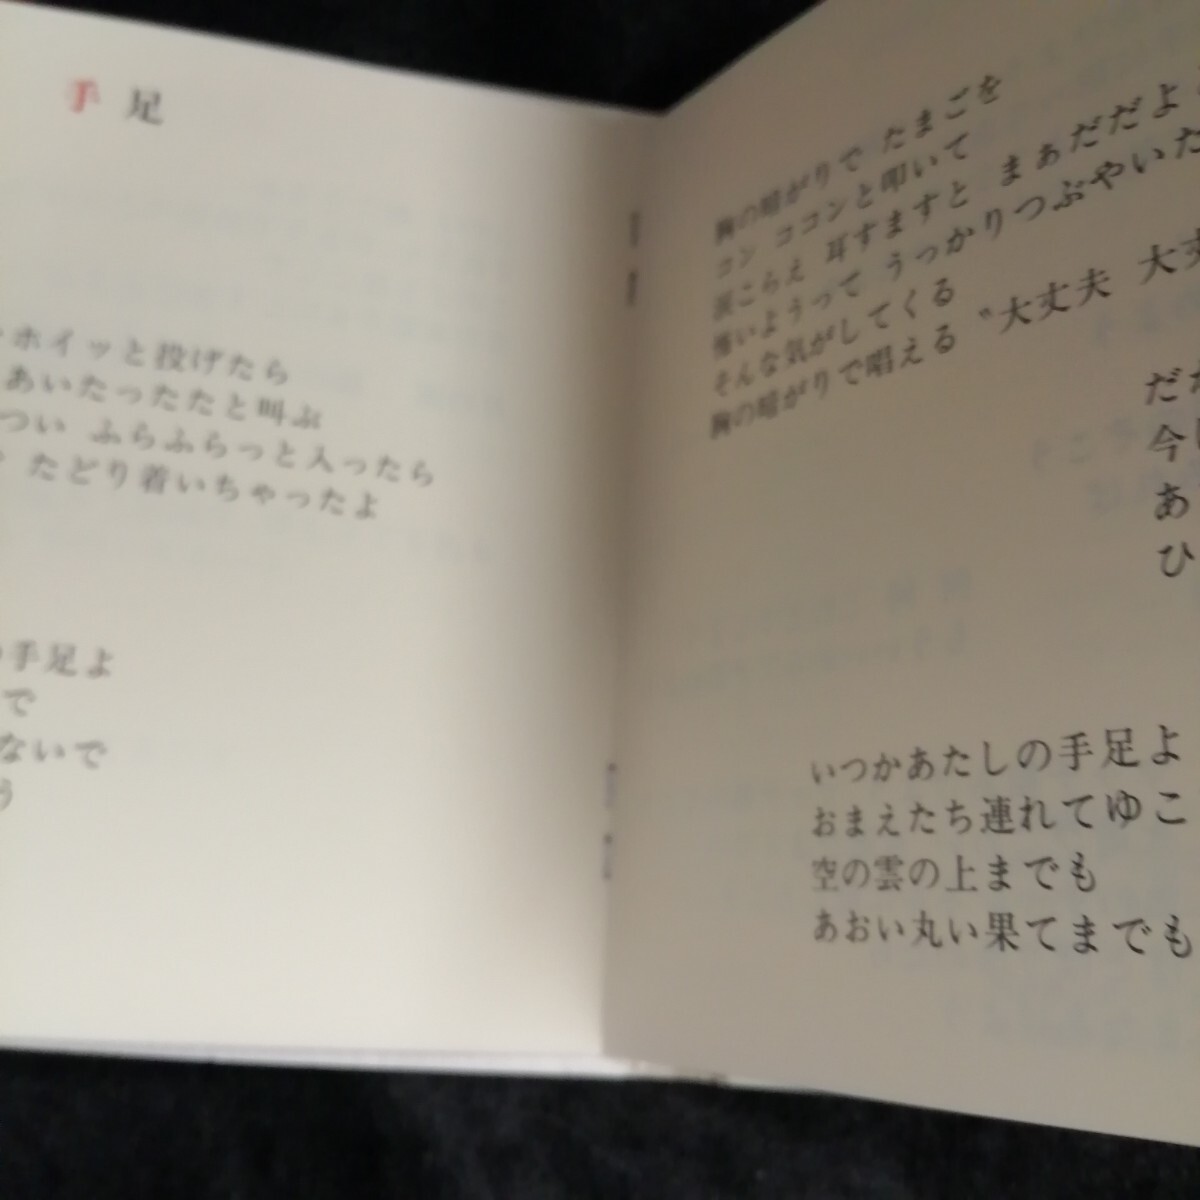 手足
ホイッと投げたら
あいたったたと叫ぶ
つい ふらふらっと入ったら
たどり着いちゃったよ
手足よ
で
ないで
う
胸の暗がりで たまごを
コン ココンと叩いて
涙こらえ 耳すますと まぁだだよ
怖いようって うっかりつぶやいた
そんな気がしてくる
胸の暗がりで唱える〝大丈夫 大丈
だ
今
あ
ひ
いつかあたしの手足よ
おまえたち連れてゆこ
空の雲の上までも
あおい丸い果てまでも